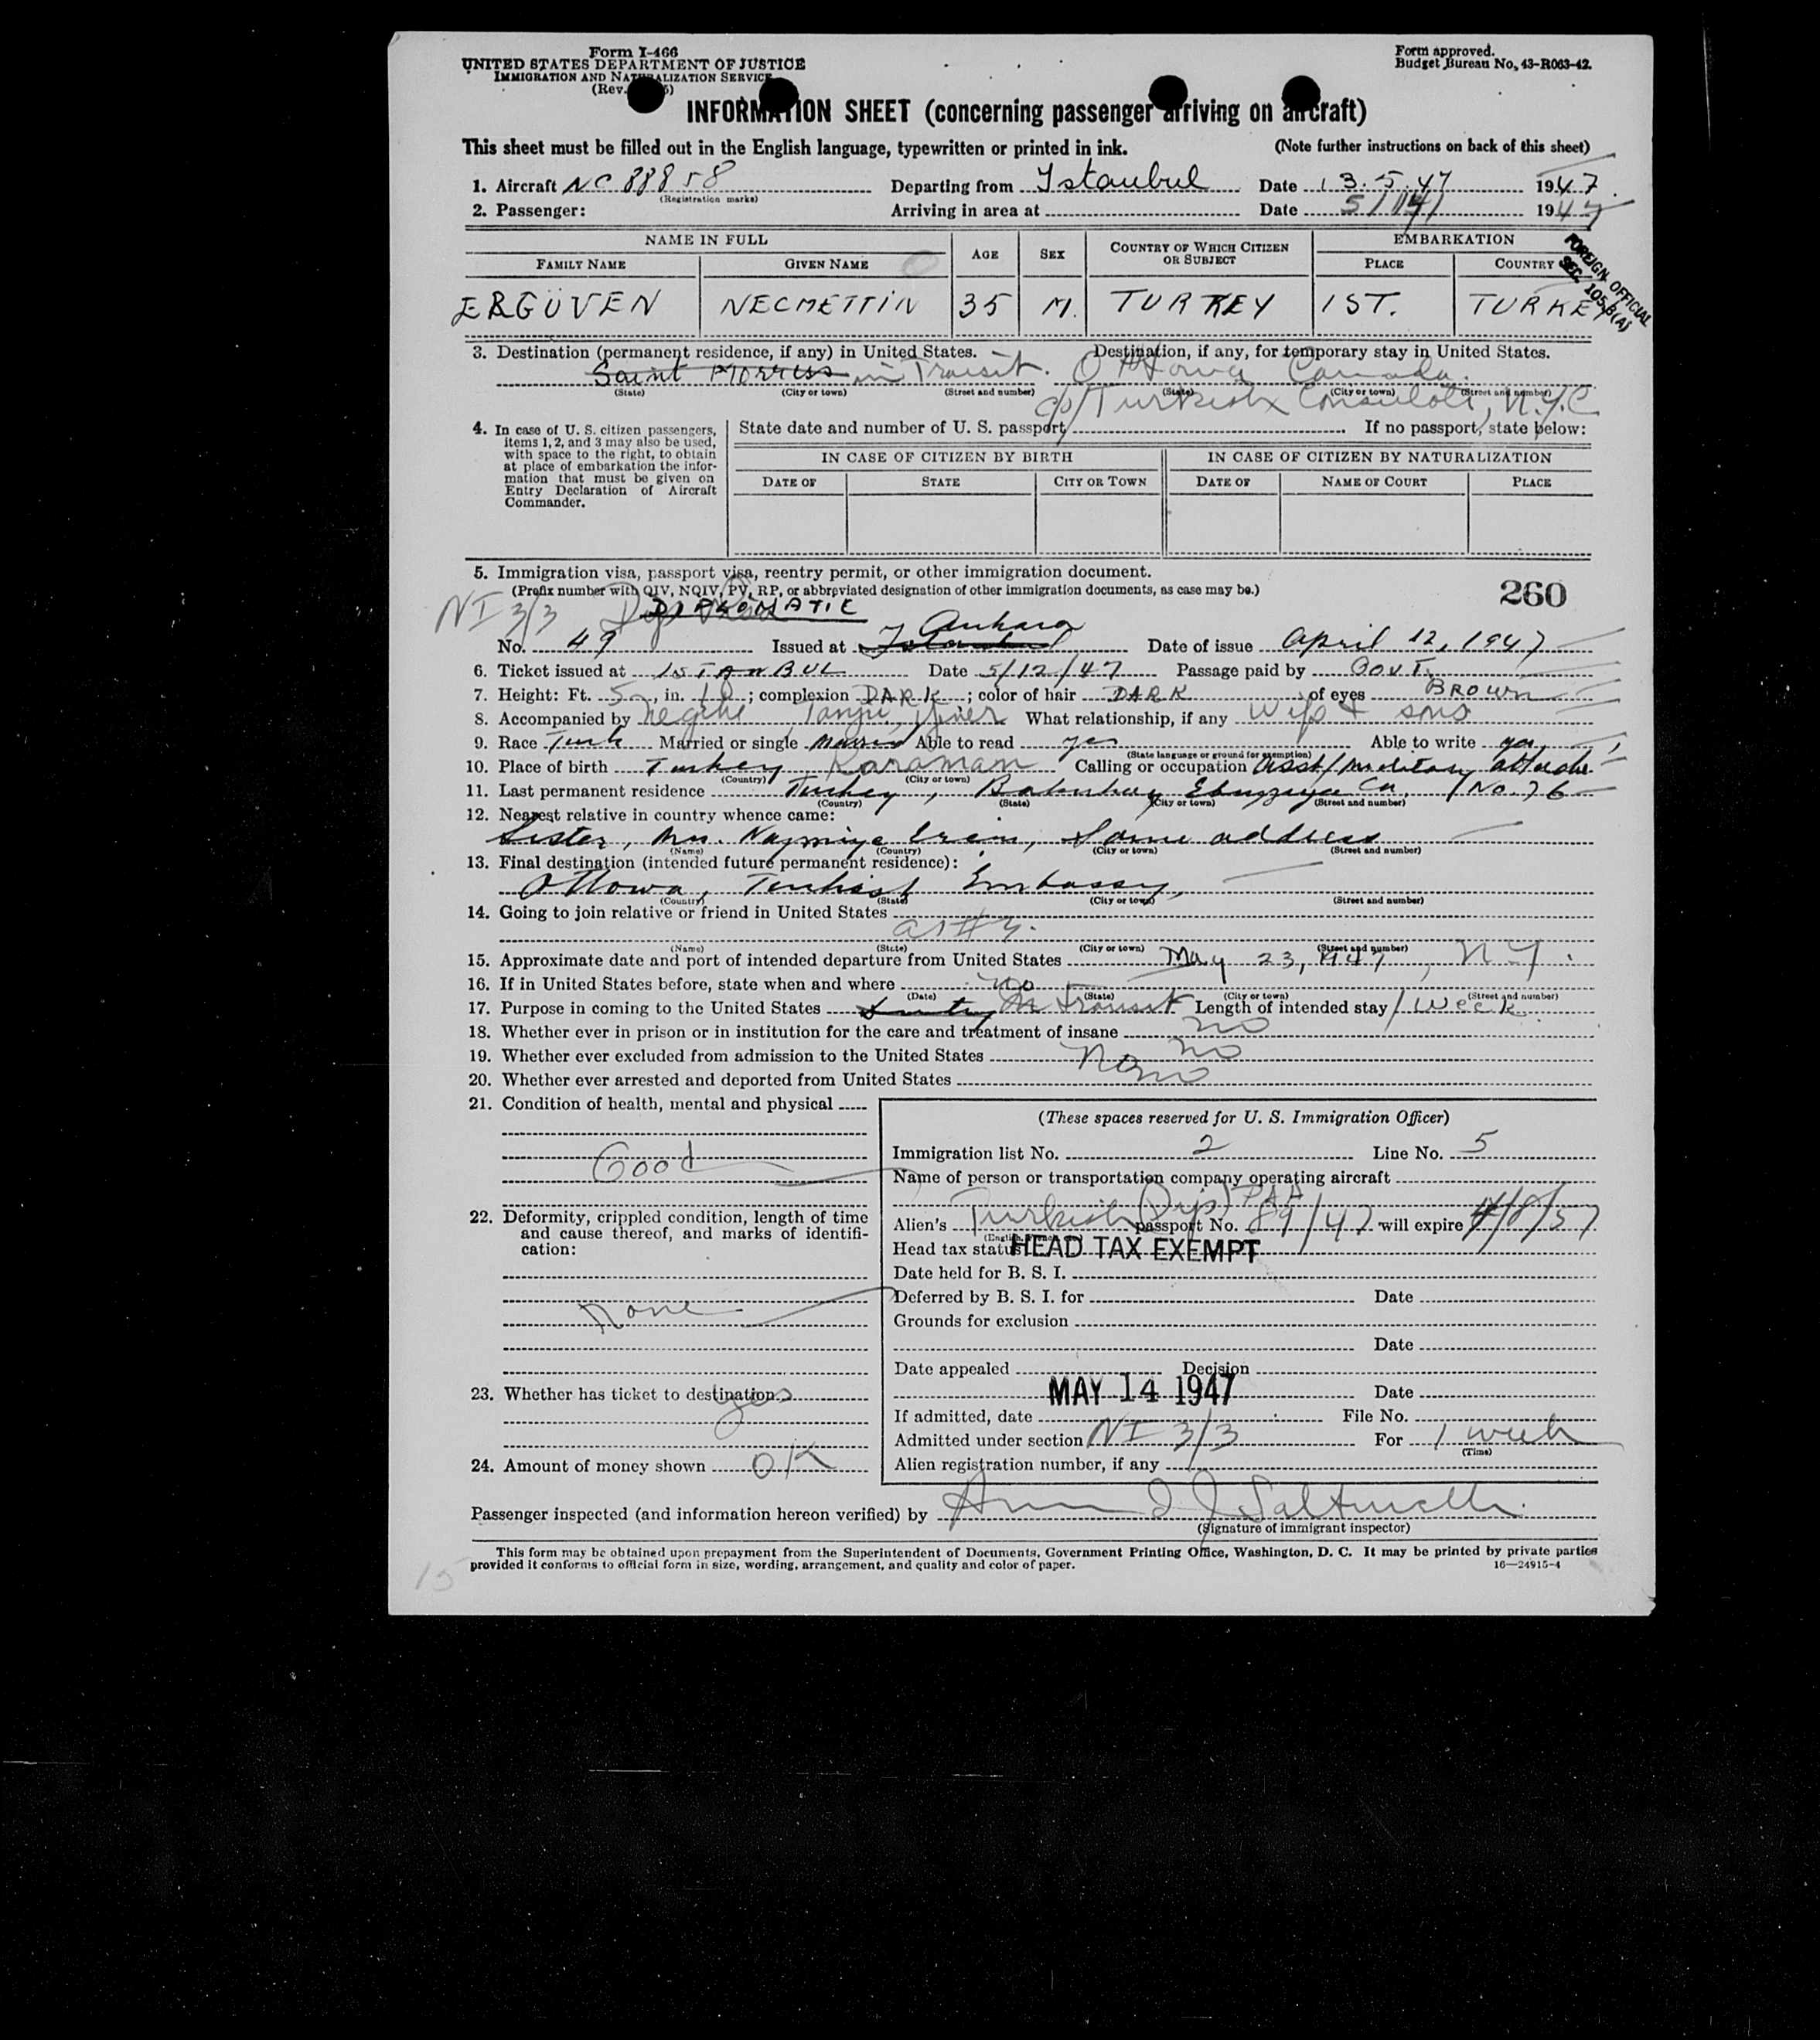 Form I-466
UNITED STATES DEPARTMENT OF JUSTICE
IMMIGRATION AND NATURALIZATION SERVICE
(Rev.
Form approved.
Budget Bureau No. 43-R063-42.
INFORMATION SHEET (concerning passenger arriving on aircraft)
This sheet must be filled out in the English language, typewritten or printed in ink. (Note further instructions on back of this sheet)
1. Aircraft NC 88858 Departing from Istanbul Date 13.5.47 1947
(Registration marks)
2. Passenger: Arriving in area at Date 5/14/ 1947
NAME IN FULL AGE SEX COUNTRY OF WHICH CITIZEN OR SUBJECT EMBARKATION
FAMILY NAME GIVEN NAME PLACE COUNTRY
FOREIGN OFFICIAL
SEC. 105.3(A)
ERGÜVEN NECMETTIN 35 M. TURKEY IST. TURKEY
3. Destination (permanent residence, if any) in United States. Destination, if any, for temporary stay in United States.
Saint in Transit. Ottowa Canada.
(State) (City or town) (Street and number) (State) (City or town) (Street and number)
c/o Turkish Consulate, N.Y.C
4. In case of U. S. citizen passengers, items 1, 2, and 3 may also be used, with space to the right, to obtain at place of embarkation the information that must be given on Entry Declaration of Aircraft Commander.
State date and number of U. S. passport If no passport, state below:
IN CASE OF CITIZEN BY BIRTH IN CASE OF CITIZEN BY NATURALIZATION
DATE OF STATE CITY OR TOWN DATE OF NAME OF COURT PLACE
5. Immigration visa, passport visa, reentry permit, or other immigration document.
(Prefix number with QIV, NQIV, PV, RP, or abbreviated designation of other immigration documents, as case may be.) 260
NI 3/3 DIPLOMATIC
Ankara
No. 49 Issued at Istanbul Date of issue April 12, 1947
6. Ticket issued at ISTANBUL Date 5/12/47 Passage paid by GOVT.
7. Height: Ft. 5, in. 10; complexion DARK; color of hair DARK of eyes BROWN
8. Accompanied by What relationship, if any Wife & sons
9. Race Turk Married or single Married Able to read yes Able to write yes
(State language or ground for exemption)
10. Place of birth Turkey Karaman Calling or occupation Asst/Military attache
(Country) (City or town)
11. Last permanent residence Turkey, Ca. No. 76
(Country) (State) (City or town) (Street and number)
12. Nearest relative in country whence came:
Sister, Mrs. Same address
(Name) (Country) (City or town) (Street and number)
13. Final destination (intended future permanent residence):
Ottowa, Turkish Embassy,
(Country) (State) (City or town) (Street and number)
14. Going to join relative or friend in United States
as #3.
(Name) (State) (City or town) (Street and number)
15. Approximate date and port of intended departure from United States May 23, 1947, N.Y.
16. If in United States before, state when and where no
(Date) (State) (City or town) (Street and number)
17. Purpose in coming to the United States In Transit Length of intended stay 1 week
18. Whether ever in prison or in institution for the care and treatment of insane no
19. Whether ever excluded from admission to the United States no
20. Whether ever arrested and deported from United States
21. Condition of health, mental and physical
Good
22. Deformity, crippled condition, length of time and cause thereof, and marks of identification:
None
23. Whether has ticket to destination yes
24. Amount of money shown OK
(These spaces reserved for U. S. Immigration Officer)
Immigration list No. 2 Line No. 5
Name of person or transportation company operating aircraft
PAA
Alien's Turkish (Dip) passport No. 89/47 will expire 4/8/57
Head tax status HEAD TAX EXEMPT
Date held for B. S. I.
Deferred by B. S. I. for Date
Grounds for exclusion
Date
Date appealed Decision
MAY 14 1947 Date
If admitted, date File No.
Admitted under section NI 3/3 For 1 week
(Time)
Alien registration number, if any
Passenger inspected (and information hereon verified) by
(Signature of immigrant inspector)
This form may be obtained upon prepayment from the Superintendent of Documents, Government Printing Office, Washington, D. C. It may be printed by private parties
provided it conforms to official form in size, wording, arrangement, and quality and color of paper. 16—24915-4
15